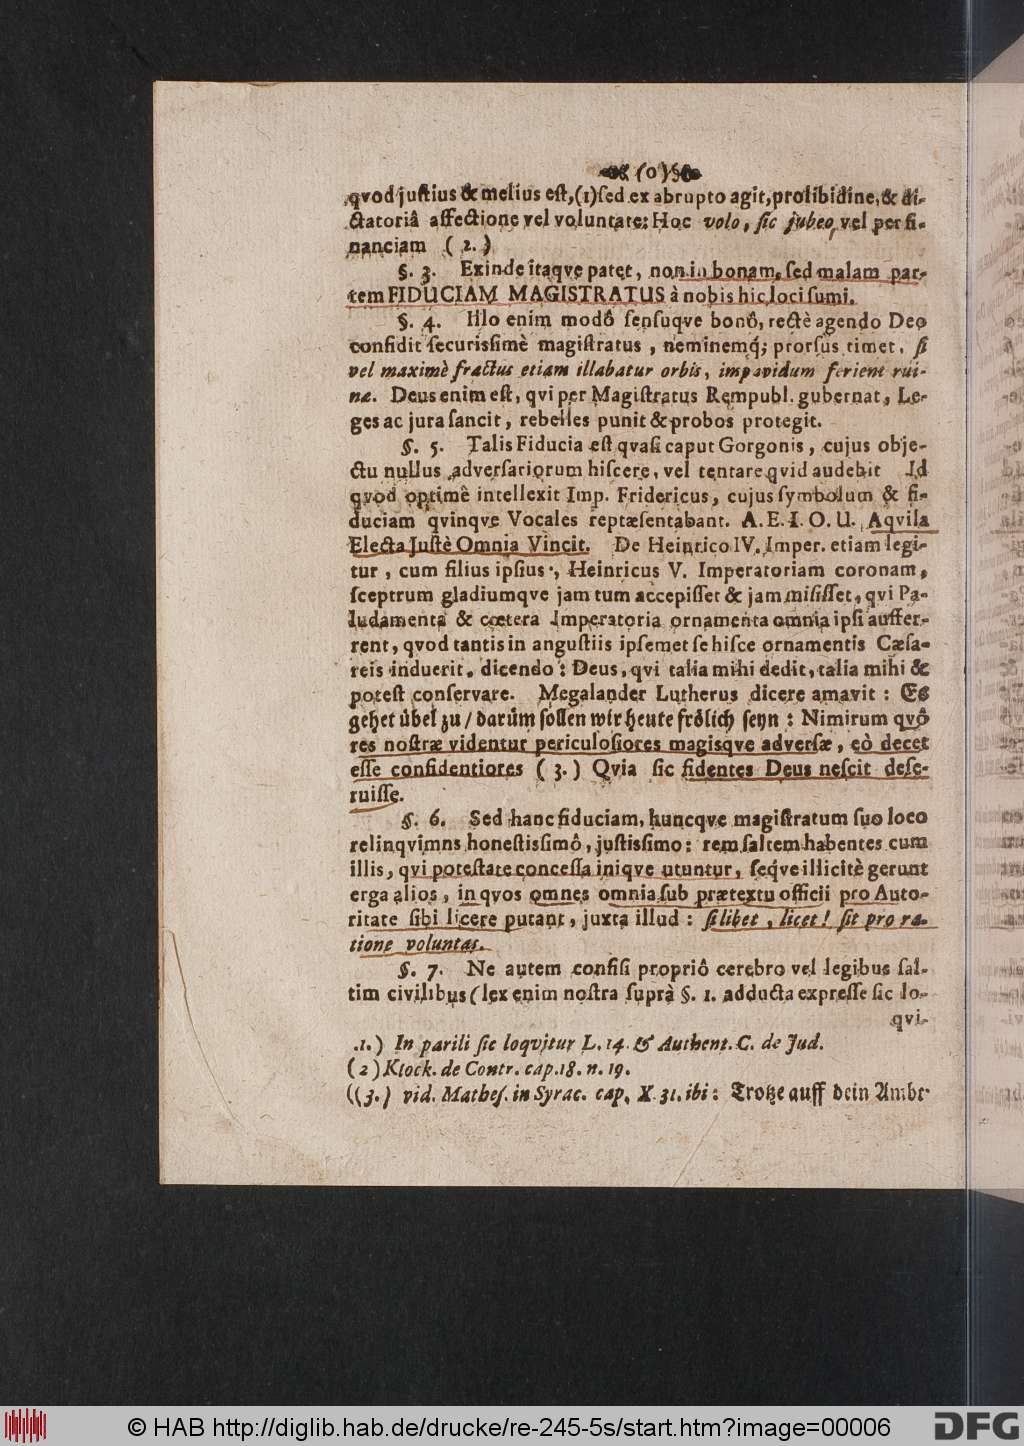 (o)
qvod juſtius & melius eſt, (1) ſed ex abrupto agit, pro libidine, & di-
ctatoriâ affectione vel voluntate: Hoc volo, ſic jubeo, vel per fi-
nanciam (2.)
§. 3. Exinde itaqve patet, non in bonam, ſed malam par-
tem FIDUCIAM MAGISTRATUS à nobis hic loci ſumi.
§. 4. Illo enim modô ſenſuqve bonô, rectè agendo Deo
confidit ſecurisſimè magiſtratus, neminemq́; prorſus timet, ſi
vel maximè fractus etiam illabatur orbis, impavidum ferient rui-
næ. Deus enim eſt, qvi per Magiſtratus Rempubl. gubernat, Le-
ges ac jura ſancit, rebelles punit & probos protegit.
§. 5. Talis Fiducia eſt qvaſi caput Gorgonis, cujus obje-
ctu nullus adverſariorum hiſcere, vel tentare qvid audebit Id
qvod optimê intellexit Imp. Fridericus, cujus ſymbolum & fi-
duciam qvinqve Vocales repræſentabant. A. E. I. O. U. Aqvila
Electa Juſtè Omnia Vincit. De Heinrico IV. Imper. etiam legi-
tur, cum filius ipſius, Heinricus V. Imperatoriam coronam,
ſceptrum gladiumqve jam tum accepiſſet & jam miſiſſet, qvi Pa-
ludamenta & cœtera Imperatoria ornamenta omnia ipſi auffer-
rent, qvod tantis in anguſtiis ipſemet ſe hiſce ornamentis Cæſa-
reis induerit, dicendo: Deus, qvi talia mihi dedit, talia mihi &
poteſt conſervare. Megalander Lutherus dicere amavit: Es
gehet übel zu / darüm ſollen wir heute frölich ſeyn: Nimirum qvô
res noſtræ videntur periculoſiores magisqve adverſæ, eò decet
eſſe confidentiores (3.) Qvia ſic fidentes Deus neſcit deſe-
ruiſſe.
§. 6. Sed hanc fiduciam, huncqve magiſtratum ſuo loco
relinqvimns honeſtisſimô, juſtisſimo: rem ſaltem habentes cum
illis, qvi poteſtate conceſſa iniqve utuntur, ſeq́ve illicitè gerunt
erga alios, in qvos omnes omnia ſub prætextu officii pro Auto-
ritate ſibi licere putant, juxta illud: ſi libet, licet! ſit pro ra-
tione voluntas.
§. 7. Ne autem confiſi propriô cerebro vel legibus ſal-
tim civilibus (lex enim noſtra ſuprà §. 1. adducta expreſſe ſic lo-
qvi-
.1.) In parili ſic loqvitur L. 14. & Authent. C. de Jud.
(2) Klock. de Contr. cap. 18. n. 19.
((3.) vid. Matheſ. in Syrac. cap. X. 31. ibi: Trotze auff dein Ambt
© HAB http://diglib.hab.de/drucke/re-245-5s/start.htm?image=00006
DFG